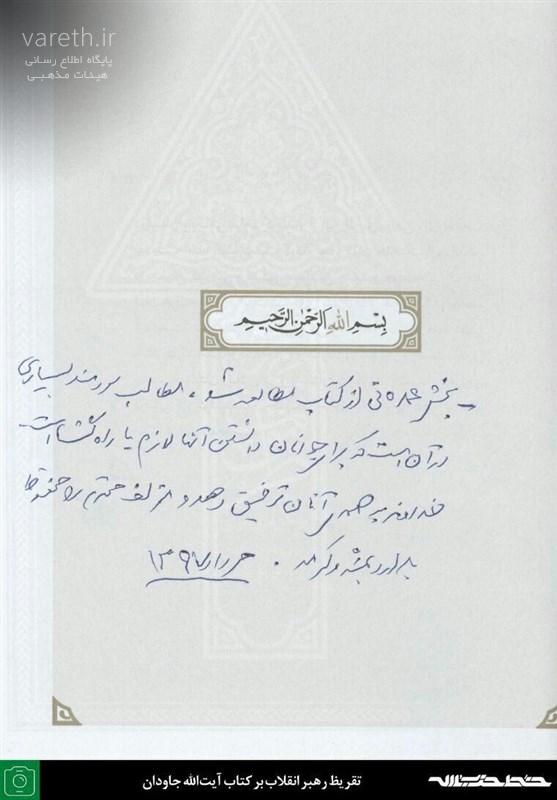 vareth.ir
پایگاه اطلاع رسانی
هیئات مذهبی
بِسْمِ اللهِ الرَّحْمٰنِ الرَّحیمِ
بخش عمده‌ئی از کتاب مطالعه شد، مطالب سودمند بسیاری
در آن است که برای جوانان دانستن آنها لازم یا راه‌گشا است.
خداوند به همه‌ی آنان توفیق دهد و مؤلف محترم را محفوظ
بدارد بمنّه و کرمه. مرداد ۱۳۹۷
خط حزب‌الله
تقریظ رهبر انقلاب بر کتاب آیت‌الله جاودان